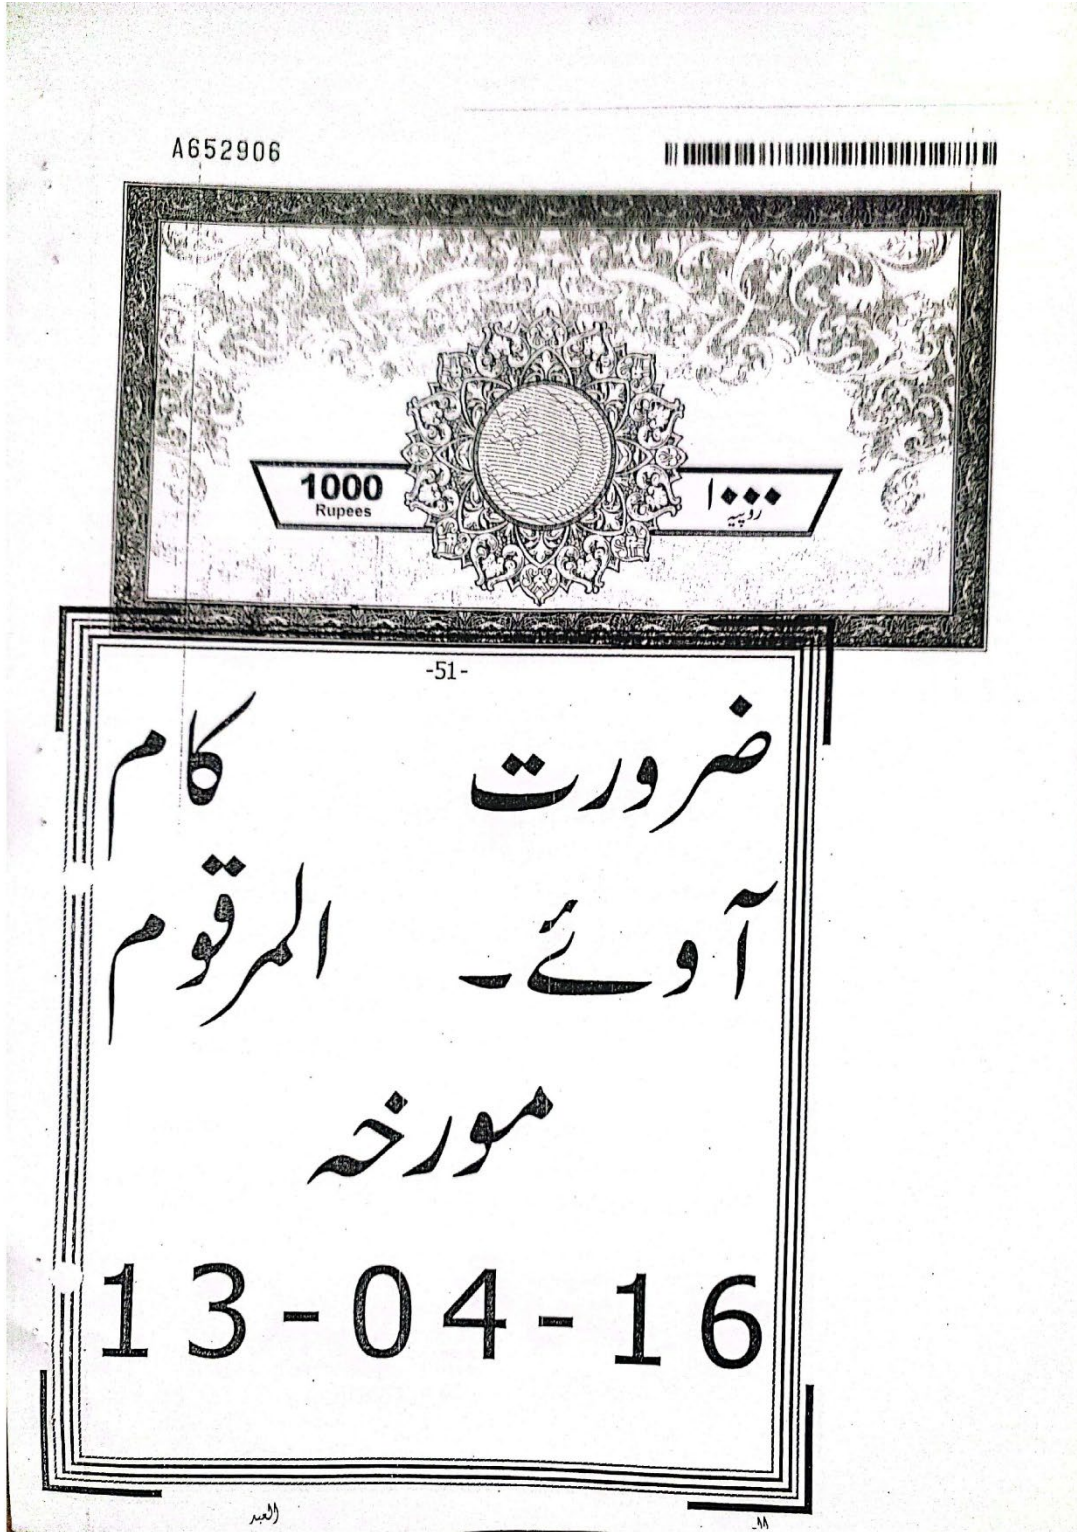 A652906
1000
Rupees
۱۰۰۰
روپیہ
-51-
ضرورت کام
آوئے۔ المرقوم
مورخہ
13-04-16
العبد